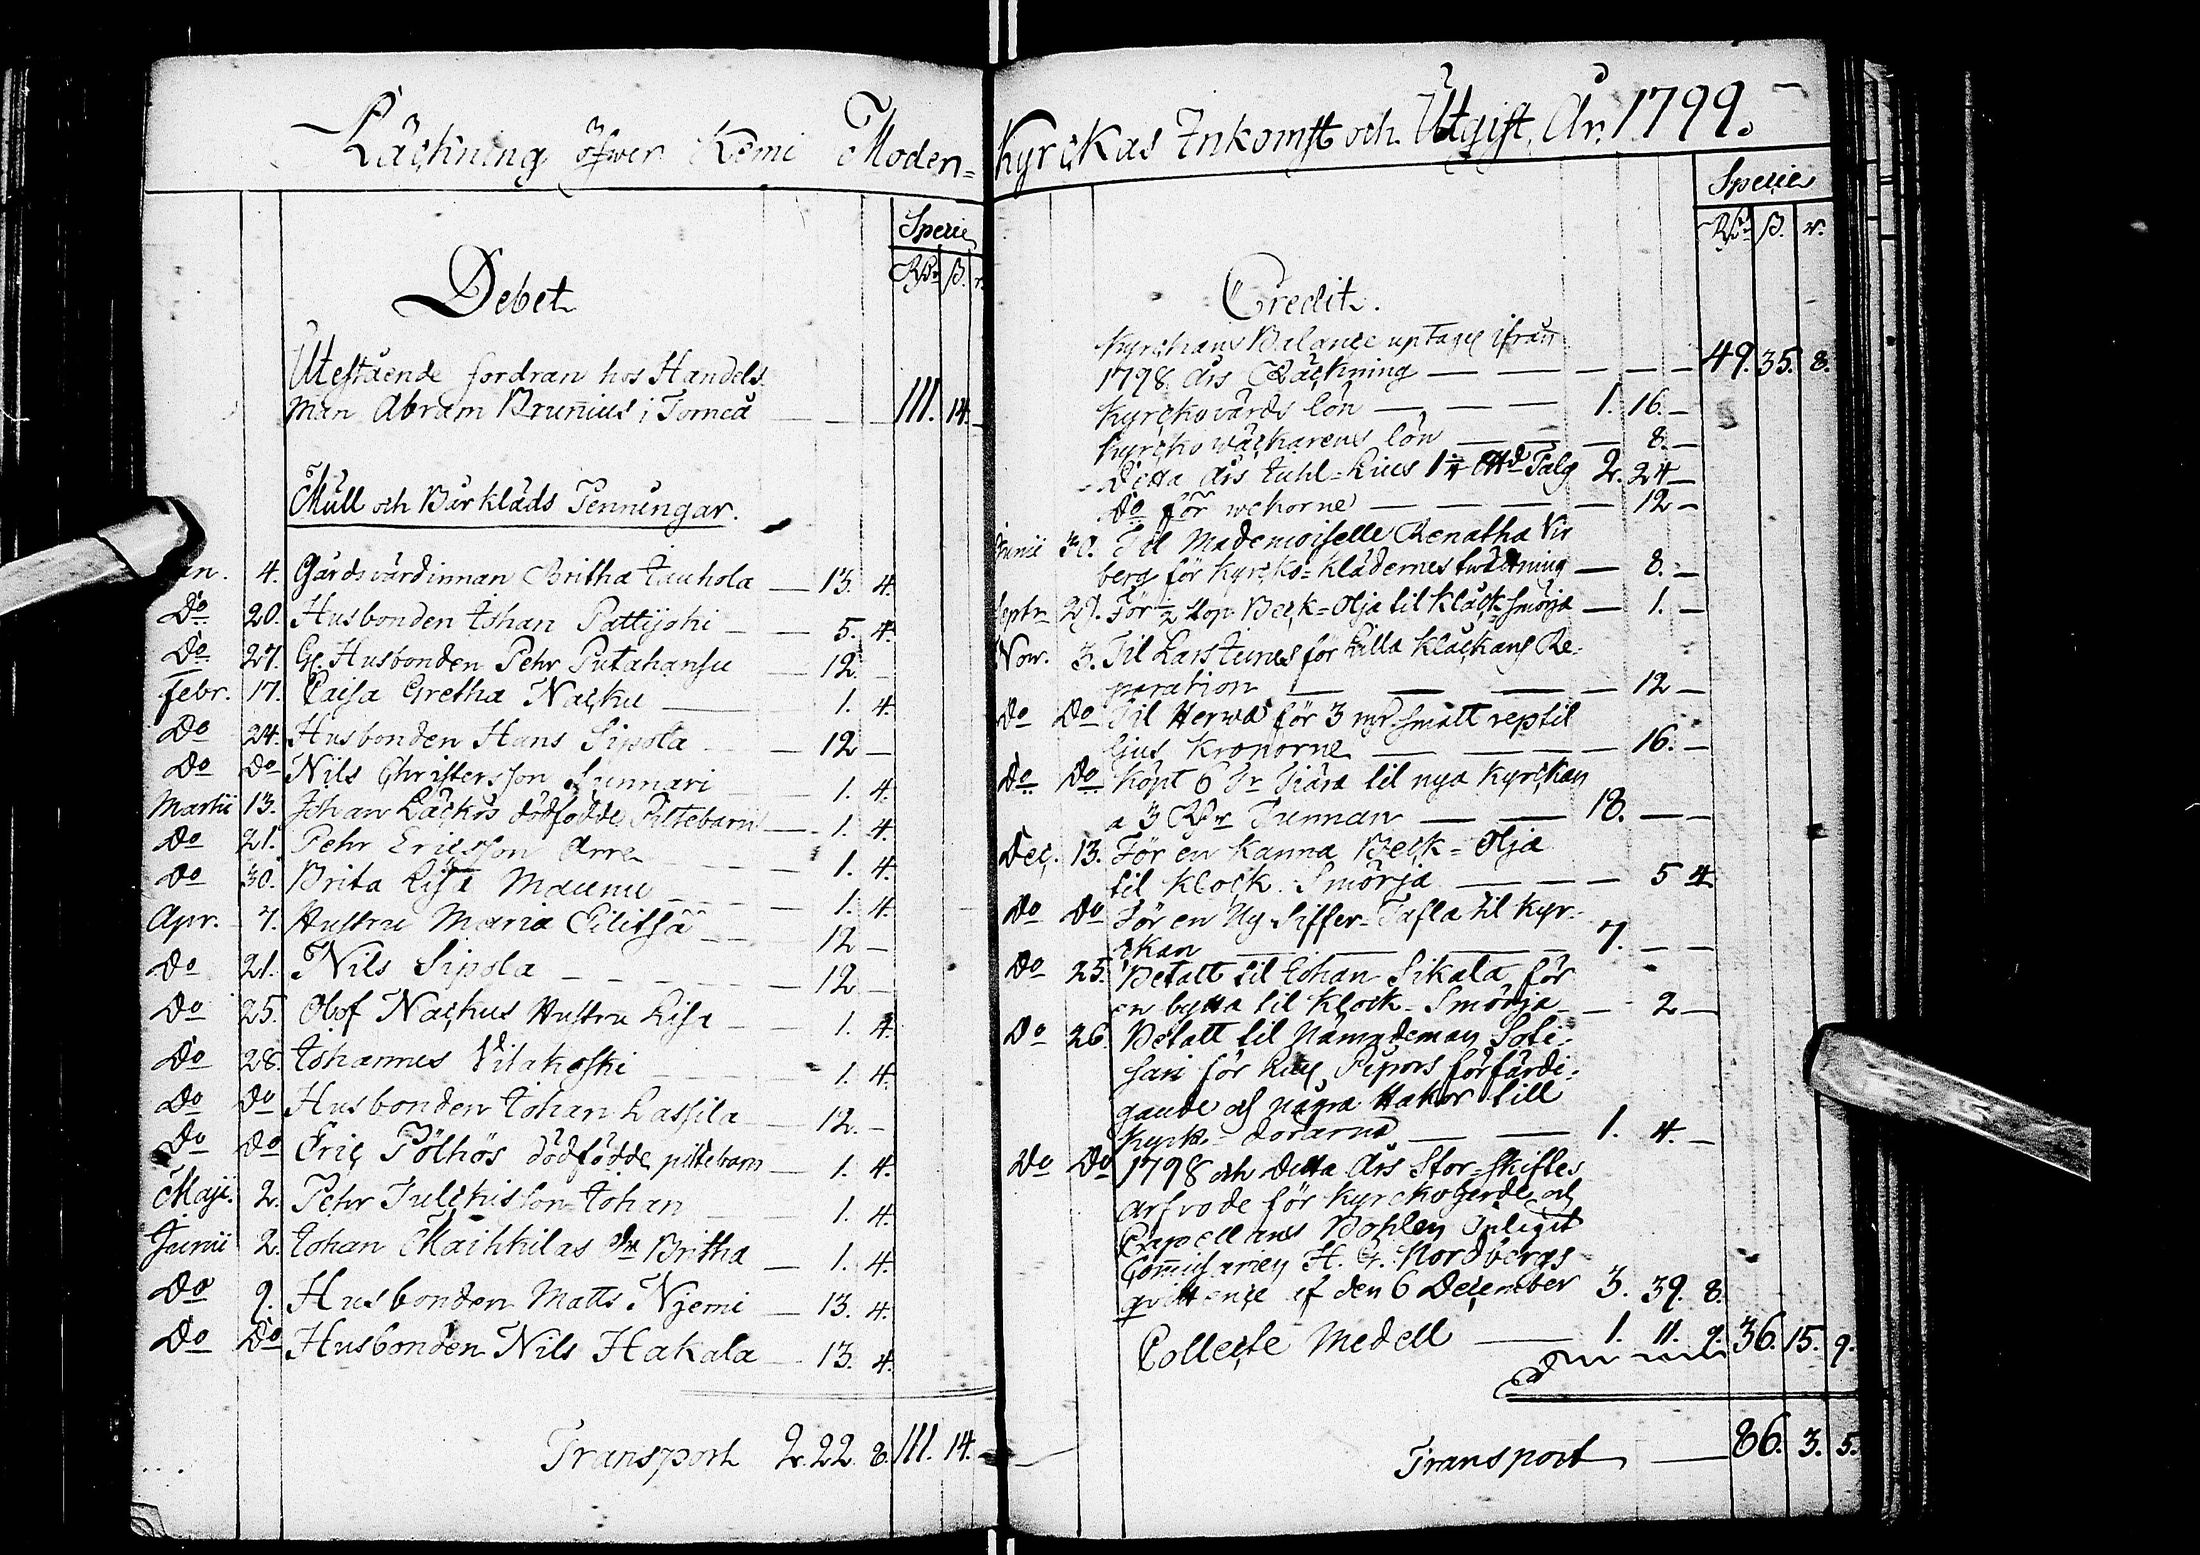 Räckning öfwer Kemi Moder=
Specie
Rdr ß. r.
Debet
Utestående fordran hos Handels
man Abram Brunius i Torneå — — — 111. 14. —
Mull och Bårkläds Penningar.
an. 4. Gårdsvärdinnan Britha Tauhola — 13. 4.
Do 20. Husbonden Johan Pattijohi — — 5. 4.
Do 27. Gl. Husbonden Pehr Putahansu — 12. —
Febr. 17. Caisa Gretha Nacku — 1. 4.
Do 24. Husbonden Hans Sipola — — 12 —
Do Do Nils Christersson Sunnari — — 1. 4.
Martii 13. Johan Läckös dödfödde Piltebarn — 1. 4.
Do 21. Pehr Ericsson Arre — — 1. 4.
Do 30. Brita Lisa Maunu — — — 1. 4.
Apr. 7. Hustru Maria — — 12 —
Do 21. Nils Sipola — — — — 12 —
Do 25. Olof Nackus Hustru Lisa — — 1. 4.
Do 28. Johannes Vilakoski — — — 1. 4.
Do Do Husbonden Johan Lassila — 12. —
Do Do Eric Pölhös dödfödde piltebarn — 1. 4.
Maji. 2. Pehr Julckisson Johan — — 1. 4.
Junii 2. Johan Maihkilas Britha — 1. 4.
Do 9. Husbonden Matts Njemi — 13. 4.
Do Do Husbonden Nils Hakala — 13. 4.
Transport 2. 22. 8. 111. 14. —
Kyrckas Inkomst och Utgift, År. 1799.
Specie
Rdr ß. r.
Credit.
Kyrckans Balance uptagen ifrån
1798 års Räckning — — — — — 49. 35. 8.
Kyrckovärds lön — — — 1. 16. —
Kyrcko väckarens lön — — — 8. —
Detta års Juhl=Lius 1 1/4 Talg 2. 24 —
Do för — — — — 12 —
Junii 30. Til Mademoiselle Renatha Vir
berg för Kyrcko=Klädernes twättning — 8. —
Septr 29. För 1/2 stop Beck=Olja til Klock Smörja — 1. —
Nov. 3. Til Lars för Lilla Klåckans Re=
paration — — — — 12 —
Do Do Til för 3 smått rep til
ljus Kronorne — — — — 16. —
Do Do Köpt 6 Tr Tjära til nya Kyrckan
a 3 Rdr Tunnan — — 18. — —
Dec. 13. För en Kanna Beck=Olja
til Klock. Smörja — — — 5 4
Do Do För en Ny Siffer=Tafla til Kyr=
ckan — — — 7. — —
Do 25. Betalt til Johan Sikala för
en bytta til Klock=Smörja — — 2 —
Do 26. Betalt til Nämndeman Soti=
sari för förfärdi=
gande och några Hakor till
Kyrk=dörarna — — 1. 4. —
Do Do 1798 och detta års Stor=Skiftes
arfvode för Kyrcko och
Capellans Bohlen Enligit
Commissarien H. G. Nordbergs
qvittence af den 6 December 3. 39. 8.
Collecte Medell — 1. 11. 9. 36. 15. 9.
Transport — 86. 3. 5.